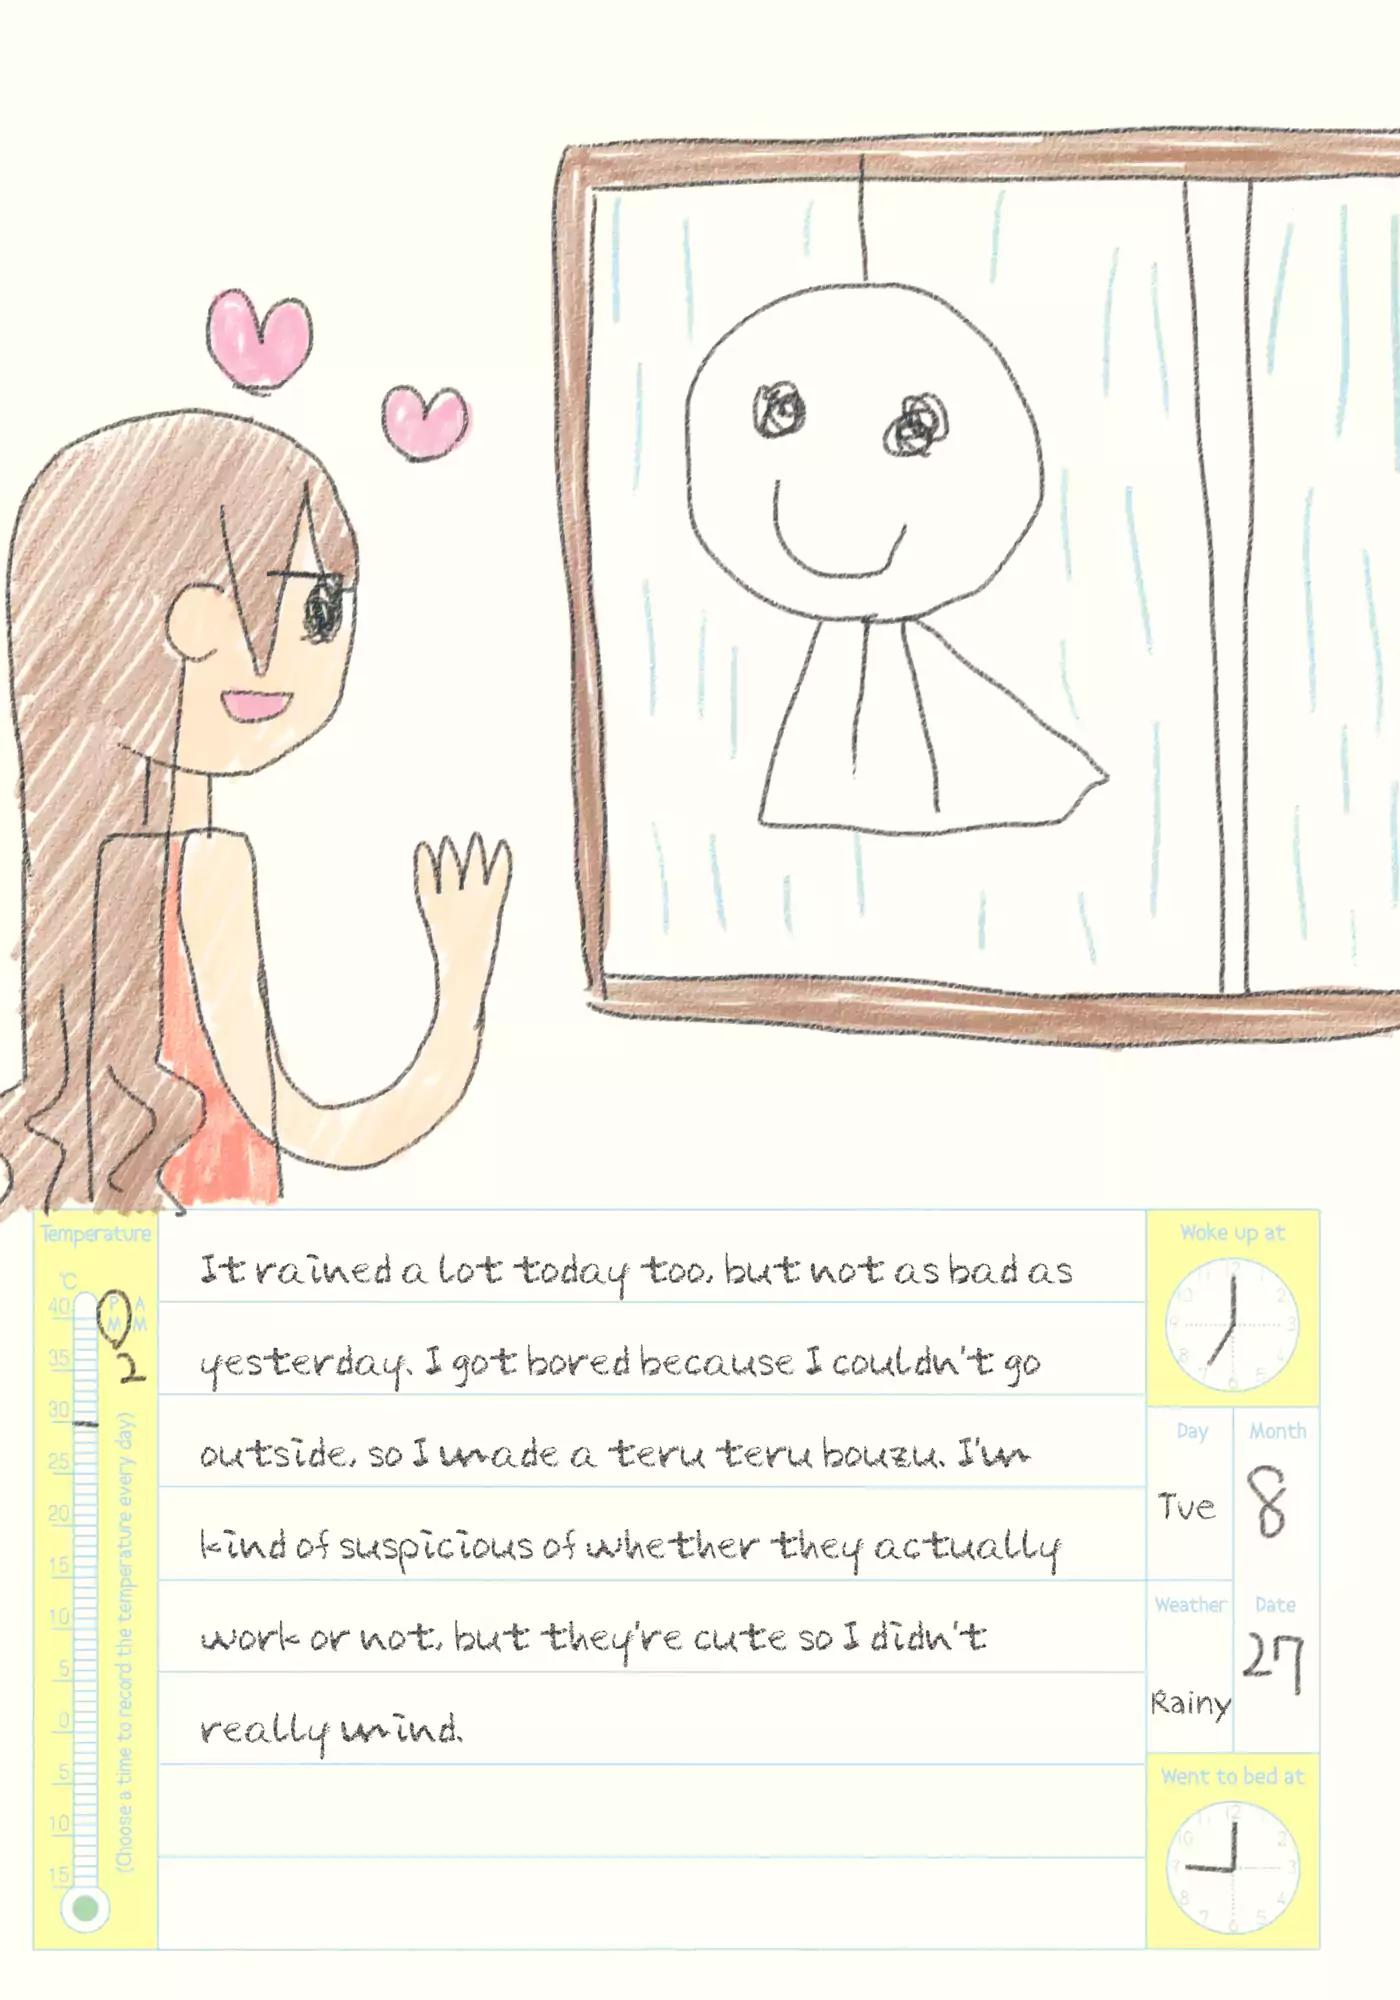 Temperature
℃
40
35
30
25
20
15
10
5
0
5
10
15
PM
AM
2
(Choose a time to record the temperature every day)
It rained a lot today too, but not as bad as
yesterday. I got bored because I couldn't go
outside, so I made a teru teru bouzu. I'm
kind of suspicious of whether they actually
work or not, but they're cute so I didn't
really mind.
Woke up at
12
2
3
4
5
6
7
8
9
10
11
Day
Tue
Month
8
Weather
Rainy
Date
27
Went to bed at
12
2
3
4
5
6
7
8
9
10